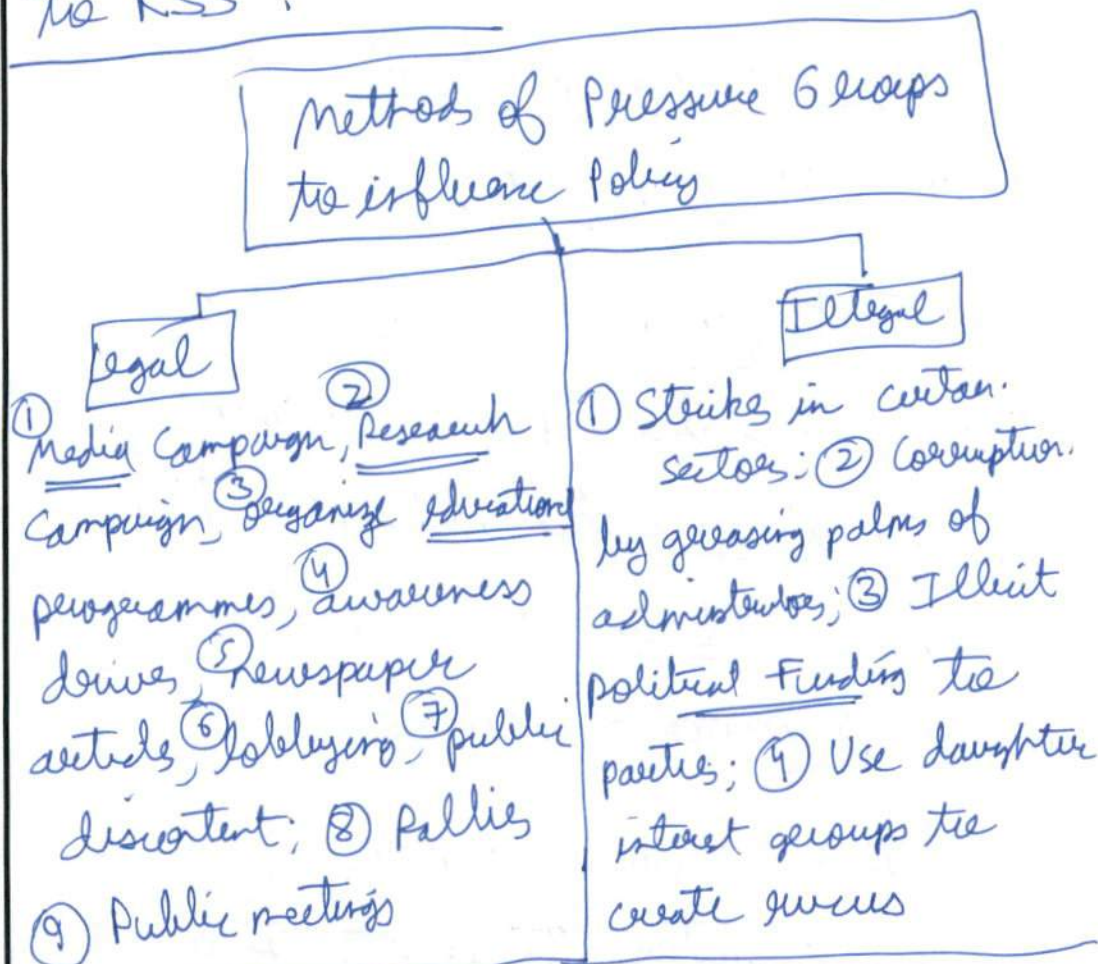 the RSS.
Methods of Pressure Groups
to influence Policy
Legal
① Media Campaign, ② Research
Campaign, ③ organize education
programmes, ④ awareness
drives, ⑤ newspaper
articles, ⑥ lobbying, ⑦ public
discontent; ⑧ Rallies
⑨ Public meetings
Illegal
① Strikes in certan.
sectors; ② Corruption.
by greasing palms of
administrators; ③ Illicit
political Funding to
parties; ④ Use daughter
interest groups to
create rucus